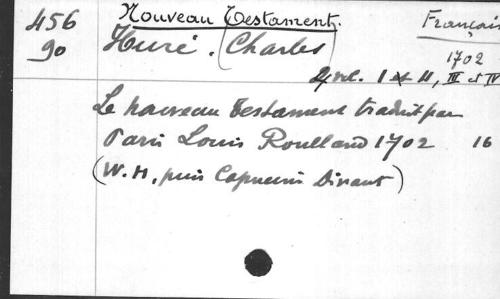 456
90
Nouveau Testament.
Français
Huré. (Charles)
1702
2 vol. I et II, III et IV
Le nouveau Testament traduit par
Paris Louis Roulland 1702 16
(W. H, puis Capucins Dinant)